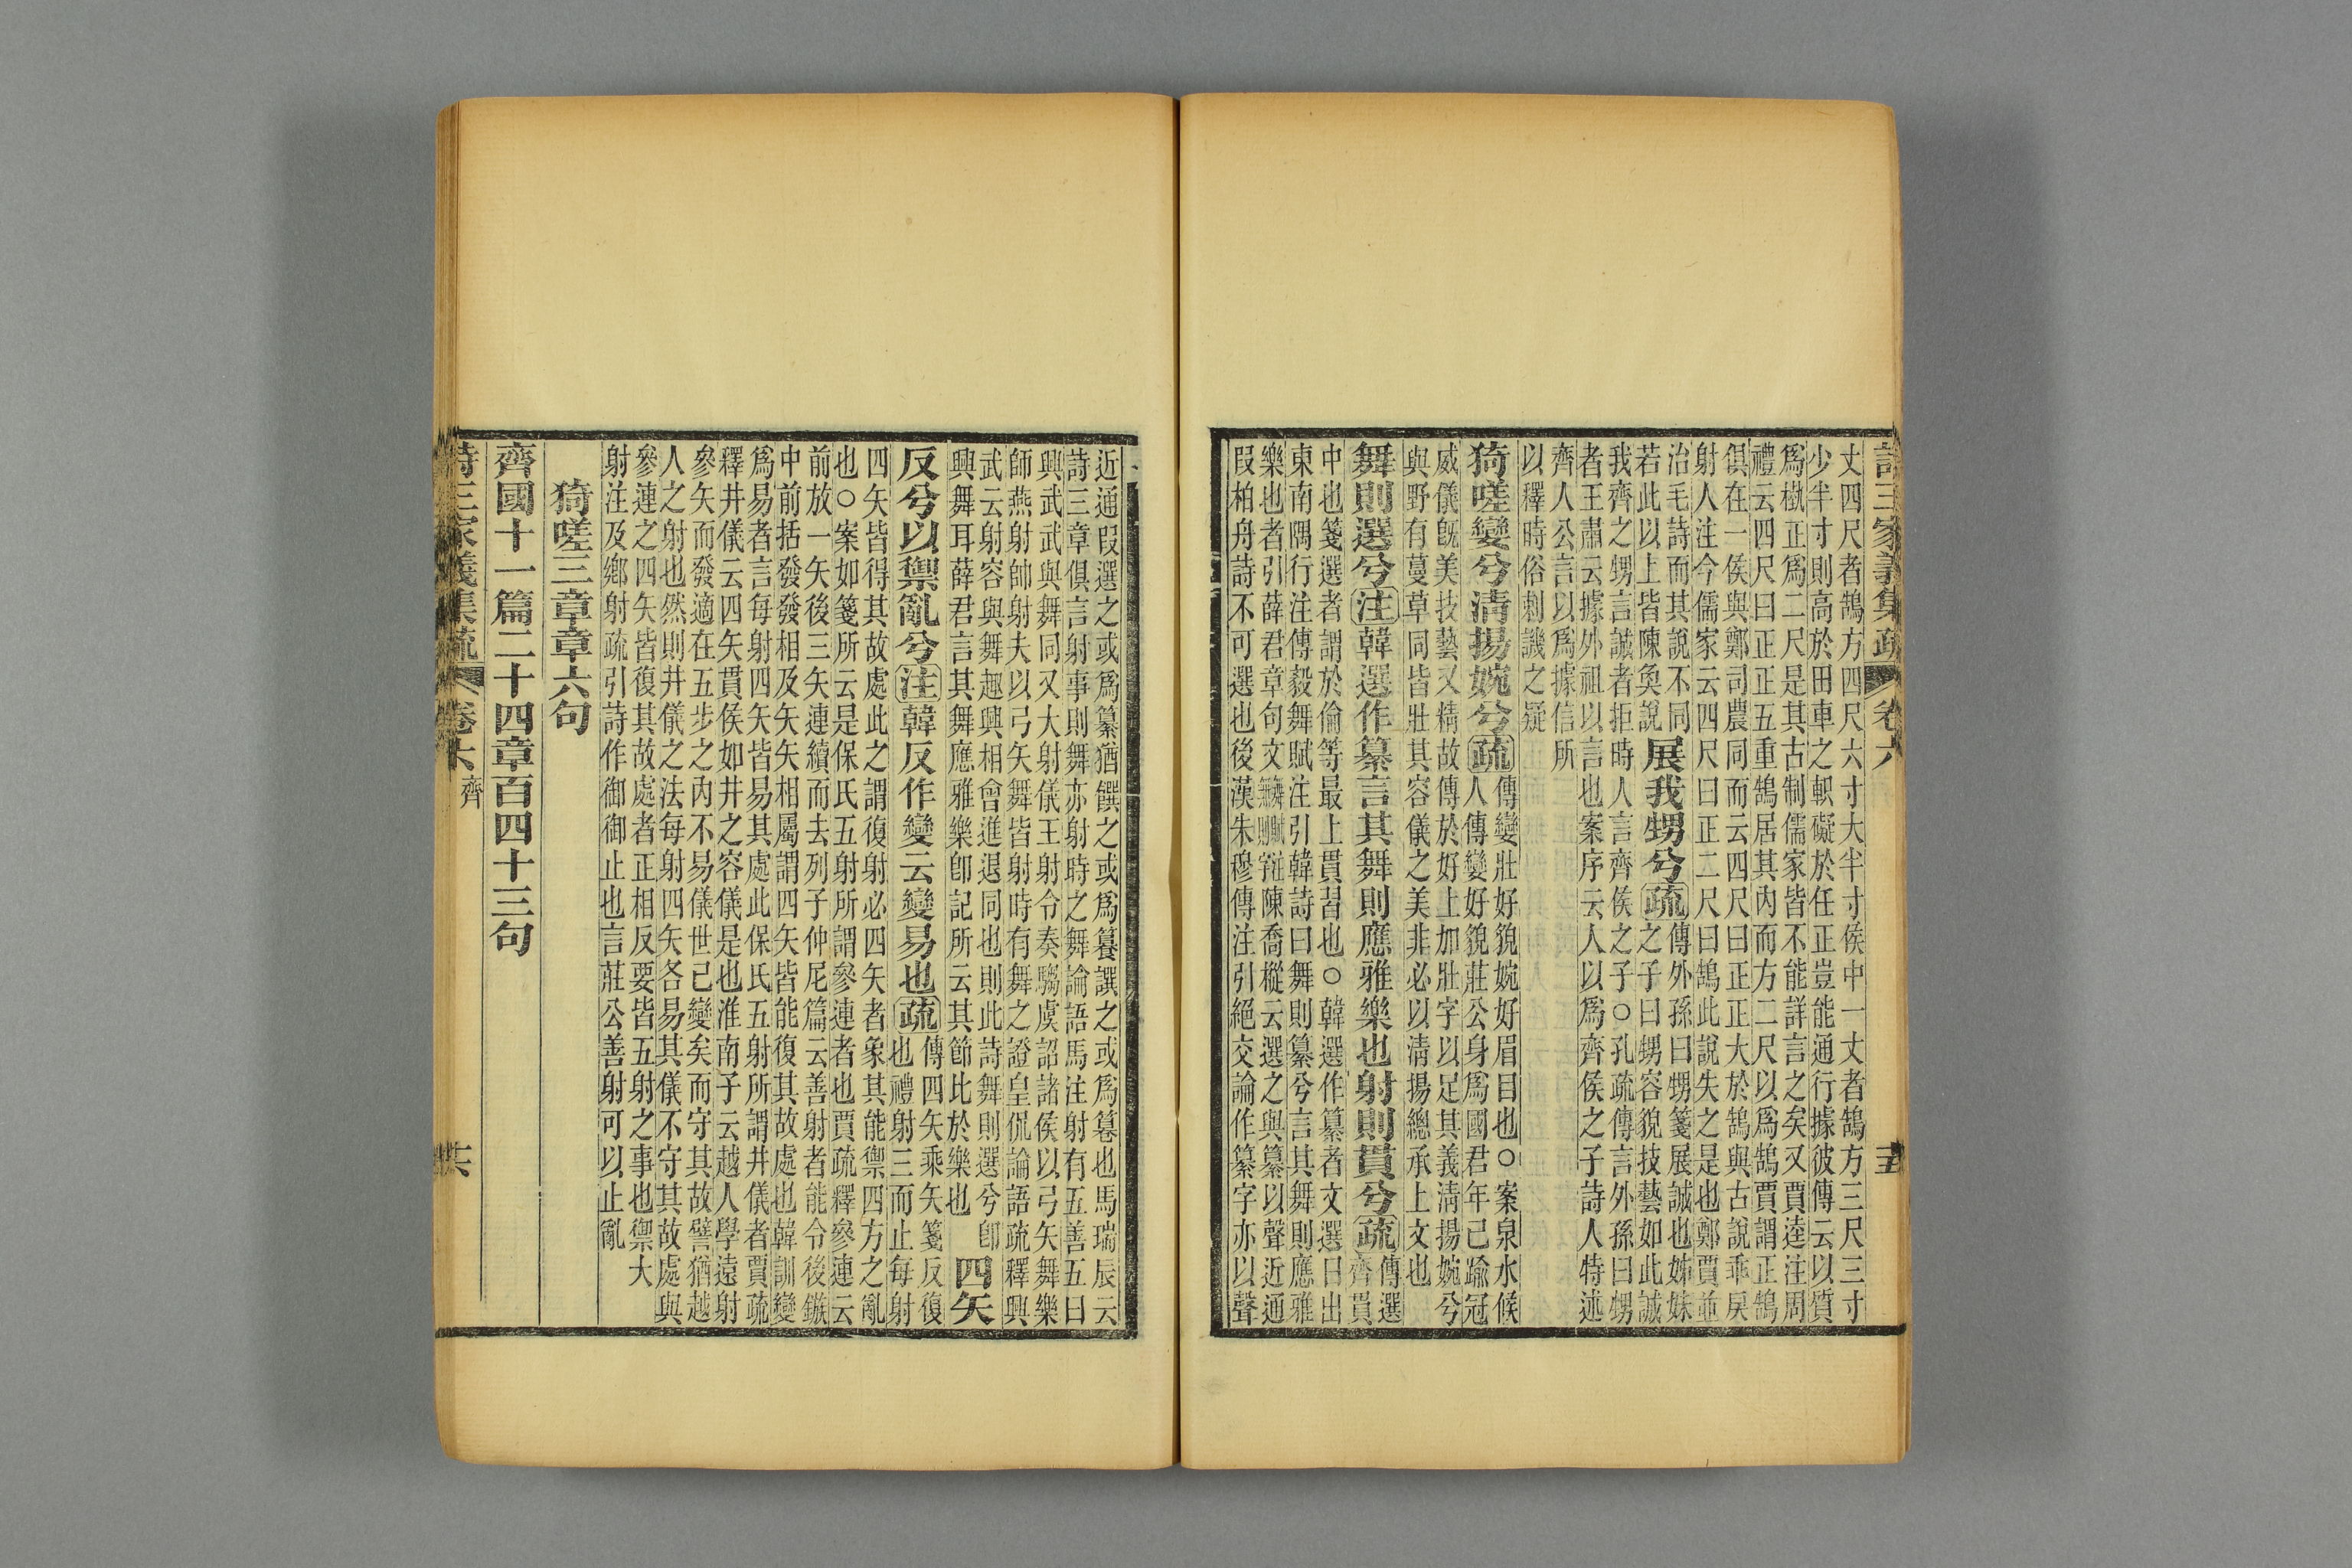 詩三家義集疏 卷六
丈四尺者鵠方四尺六寸大半寸侯中一丈者鵠方三尺三寸
少半寸則高於田車之軹礙於任正豈能通行據彼傳云以質
爲槷正爲二尺是其古制儒家皆不能詳言之矣又賈逵注周
禮云四尺曰正正五重鵠居其內而方二尺以爲鵠賈謂正鵠
俱在一侯與鄭司農同而云四尺曰正正大於鵠與古說乖戾
射人注今儒家云四尺曰正二尺曰鵠此說失之是也鄭賈並
治毛詩而其說不同
若此以上皆陳奐說
展我甥兮疏
傳外孫曰甥箋展誠也姊妹
之子曰甥容貌技藝如此誠
我齊之甥言誠者拒時人言齊侯之子○孔疏傳言外孫曰甥
者王肅云據外祖以言也案序云人以爲齊侯之子詩人特述
齊人公言以爲據信所
以釋時俗刺譏之疑
猗嗟孌兮清揚婉兮疏
傳孌壯好貌婉好眉目也○案泉水候
人傳孌好貌莊公身爲國君年已踰冠
威儀旣美技藝又精故傳於好上加壯字以足其義清揚婉兮
與野有蔓草同皆壯其容儀之美非必以清揚總承上文也
舞則選兮注韓選作纂言其舞則應雅樂也射則貫兮疏
傳選
齊貫
中也箋選者謂於倫等最上貫習也○韓選作纂者文選日出
東南隅行注傳毅舞賦注引韓詩曰舞則纂兮言其舞則應雅
樂也者引薛君章句文陳喬樅云選之與纂以聲近通
叚柏舟詩不可選也後漢朱穆傳注引絕交論作纂字亦以聲
近通叚選之或爲纂猶饌之或爲籑譔之或爲篹也馬瑞辰云
詩三章俱言射事則舞亦射時之舞論語馬注射有五善五曰
興武武與舞同又大射儀王射令奏騶虞詔諸侯以弓矢舞樂
師燕射帥射夫以弓矢舞皆射時有舞之證皇侃論語疏釋興
武云射容與舞趣興相會進退同也則此詩舞則選兮卽
興舞耳薛君言其舞應雅樂卽記所云其節比於樂也
四矢
反兮以禦亂兮注韓反作變云變易也疏
傳四矢乘矢箋反復
也禮射三而止每射
四矢皆得其故處此之謂復射必四矢者象其能禦四方之亂
也○案如箋所云是保氏五射所謂參連者也賈疏釋參連云
前放一矢後三矢連續而去列子仲尼篇云善射者能令後鏃
中前括發發相及矢矢相屬謂四矢皆能復其故處也韓訓變
爲易者言每射四矢皆易其處此保氏五射所謂井儀者賈疏
釋井儀云四矢貫侯如井之容儀是也淮南子云越人學遠射
參矢而發適在五步之內不易儀世已變矣而守其故譬猶越
人之射也然則井儀之法每射四矢各易其儀不守其故處與
參連之四矢皆復其故處者正相反要皆五射之事也禦大
射注及鄉射疏引詩作御御止也言莊公善射可以止亂
猗嗟三章章六句
齊國十一篇二十四章百四十三句
詩三家義集疏 卷六 齊